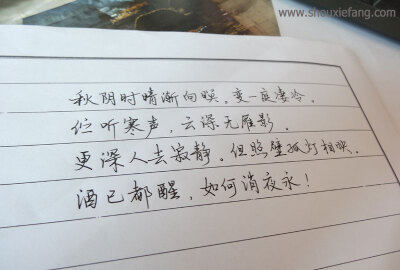 www.shouxiefang.com
秋阴时晴渐向暝，变一庭凄冷。
伫听寒声，云深无雁影。
更深人去寂静，但照壁孤灯相映。
酒已都醒，如何消夜永！